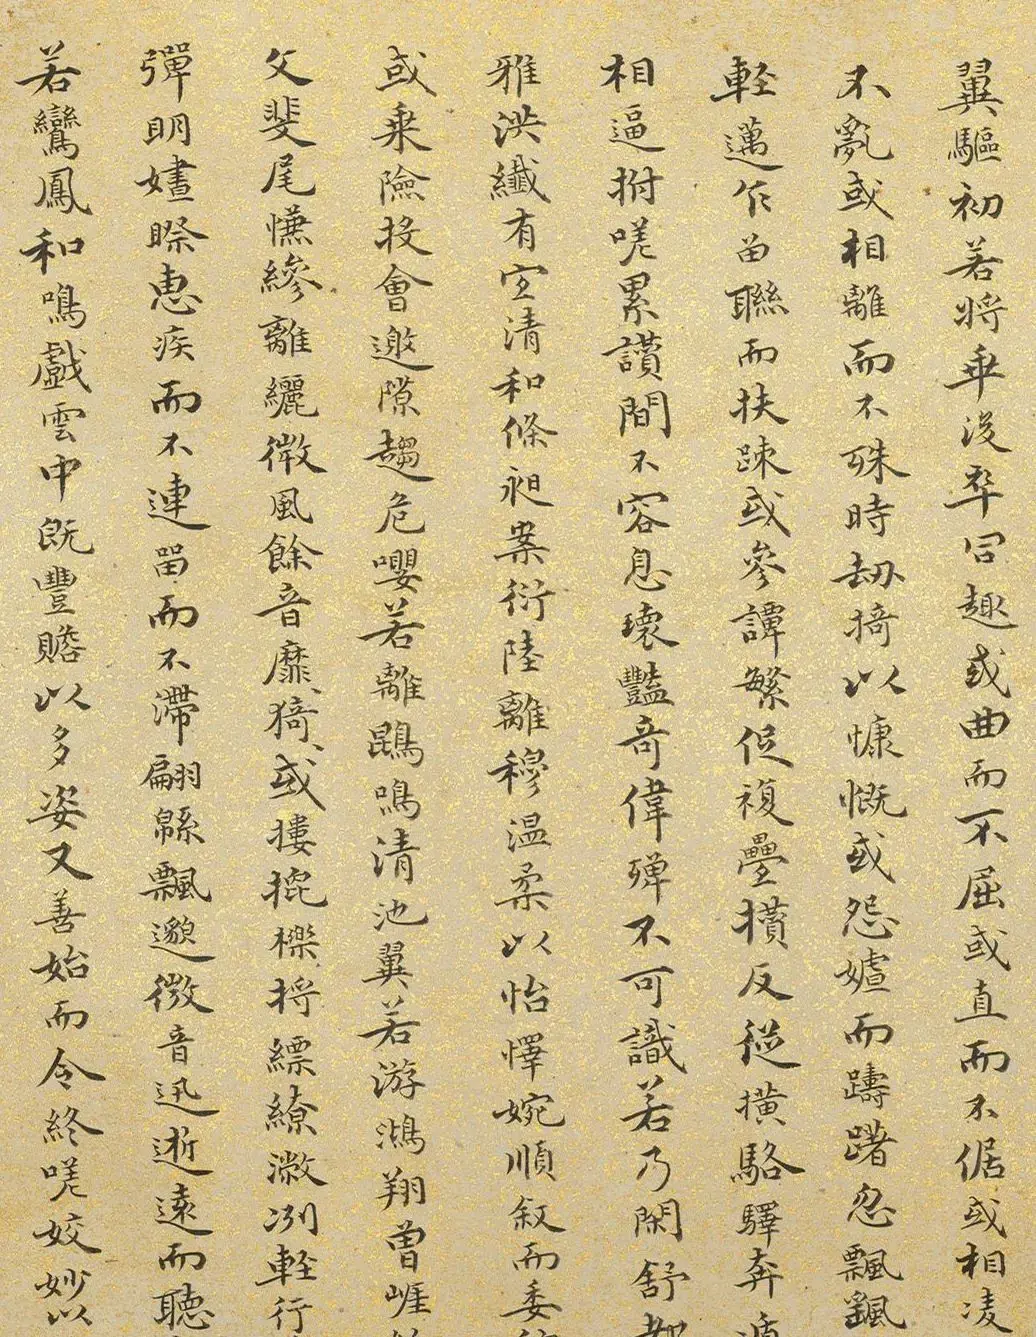 翼驅初若將乖後卒同趣或曲而不屈或直而不倨或相淩
不亂或相離而不殊時劫掎以慷慨或怨㜘而躊躇忽飄飖
輕邁乍留聯而扶踈或參譚繁促複疊攢仄從橫駱驛奔遁
相逼拊嗟累讚間不容息瓌豔奇偉殫不可識若乃閑舒都
雅洪纖有宜清和條昶案衍陸離穆温柔以怡懌婉順叙而委
或乘險投會邀隙趨危嚶若離鵾鳴清池翼若游鴻翔曽崖
文斐尾慊縿離纚微風餘音靡靡猗猗或摟㧰櫟捋縹繚潎冽輕行
彈明嫿䁞惠疾而不速留而不滯翩緜飄邈微音迅逝遠而聽
若鸞鳳和鳴戲雲中既豐贍以多姿又善始而令終嗟姣妙以